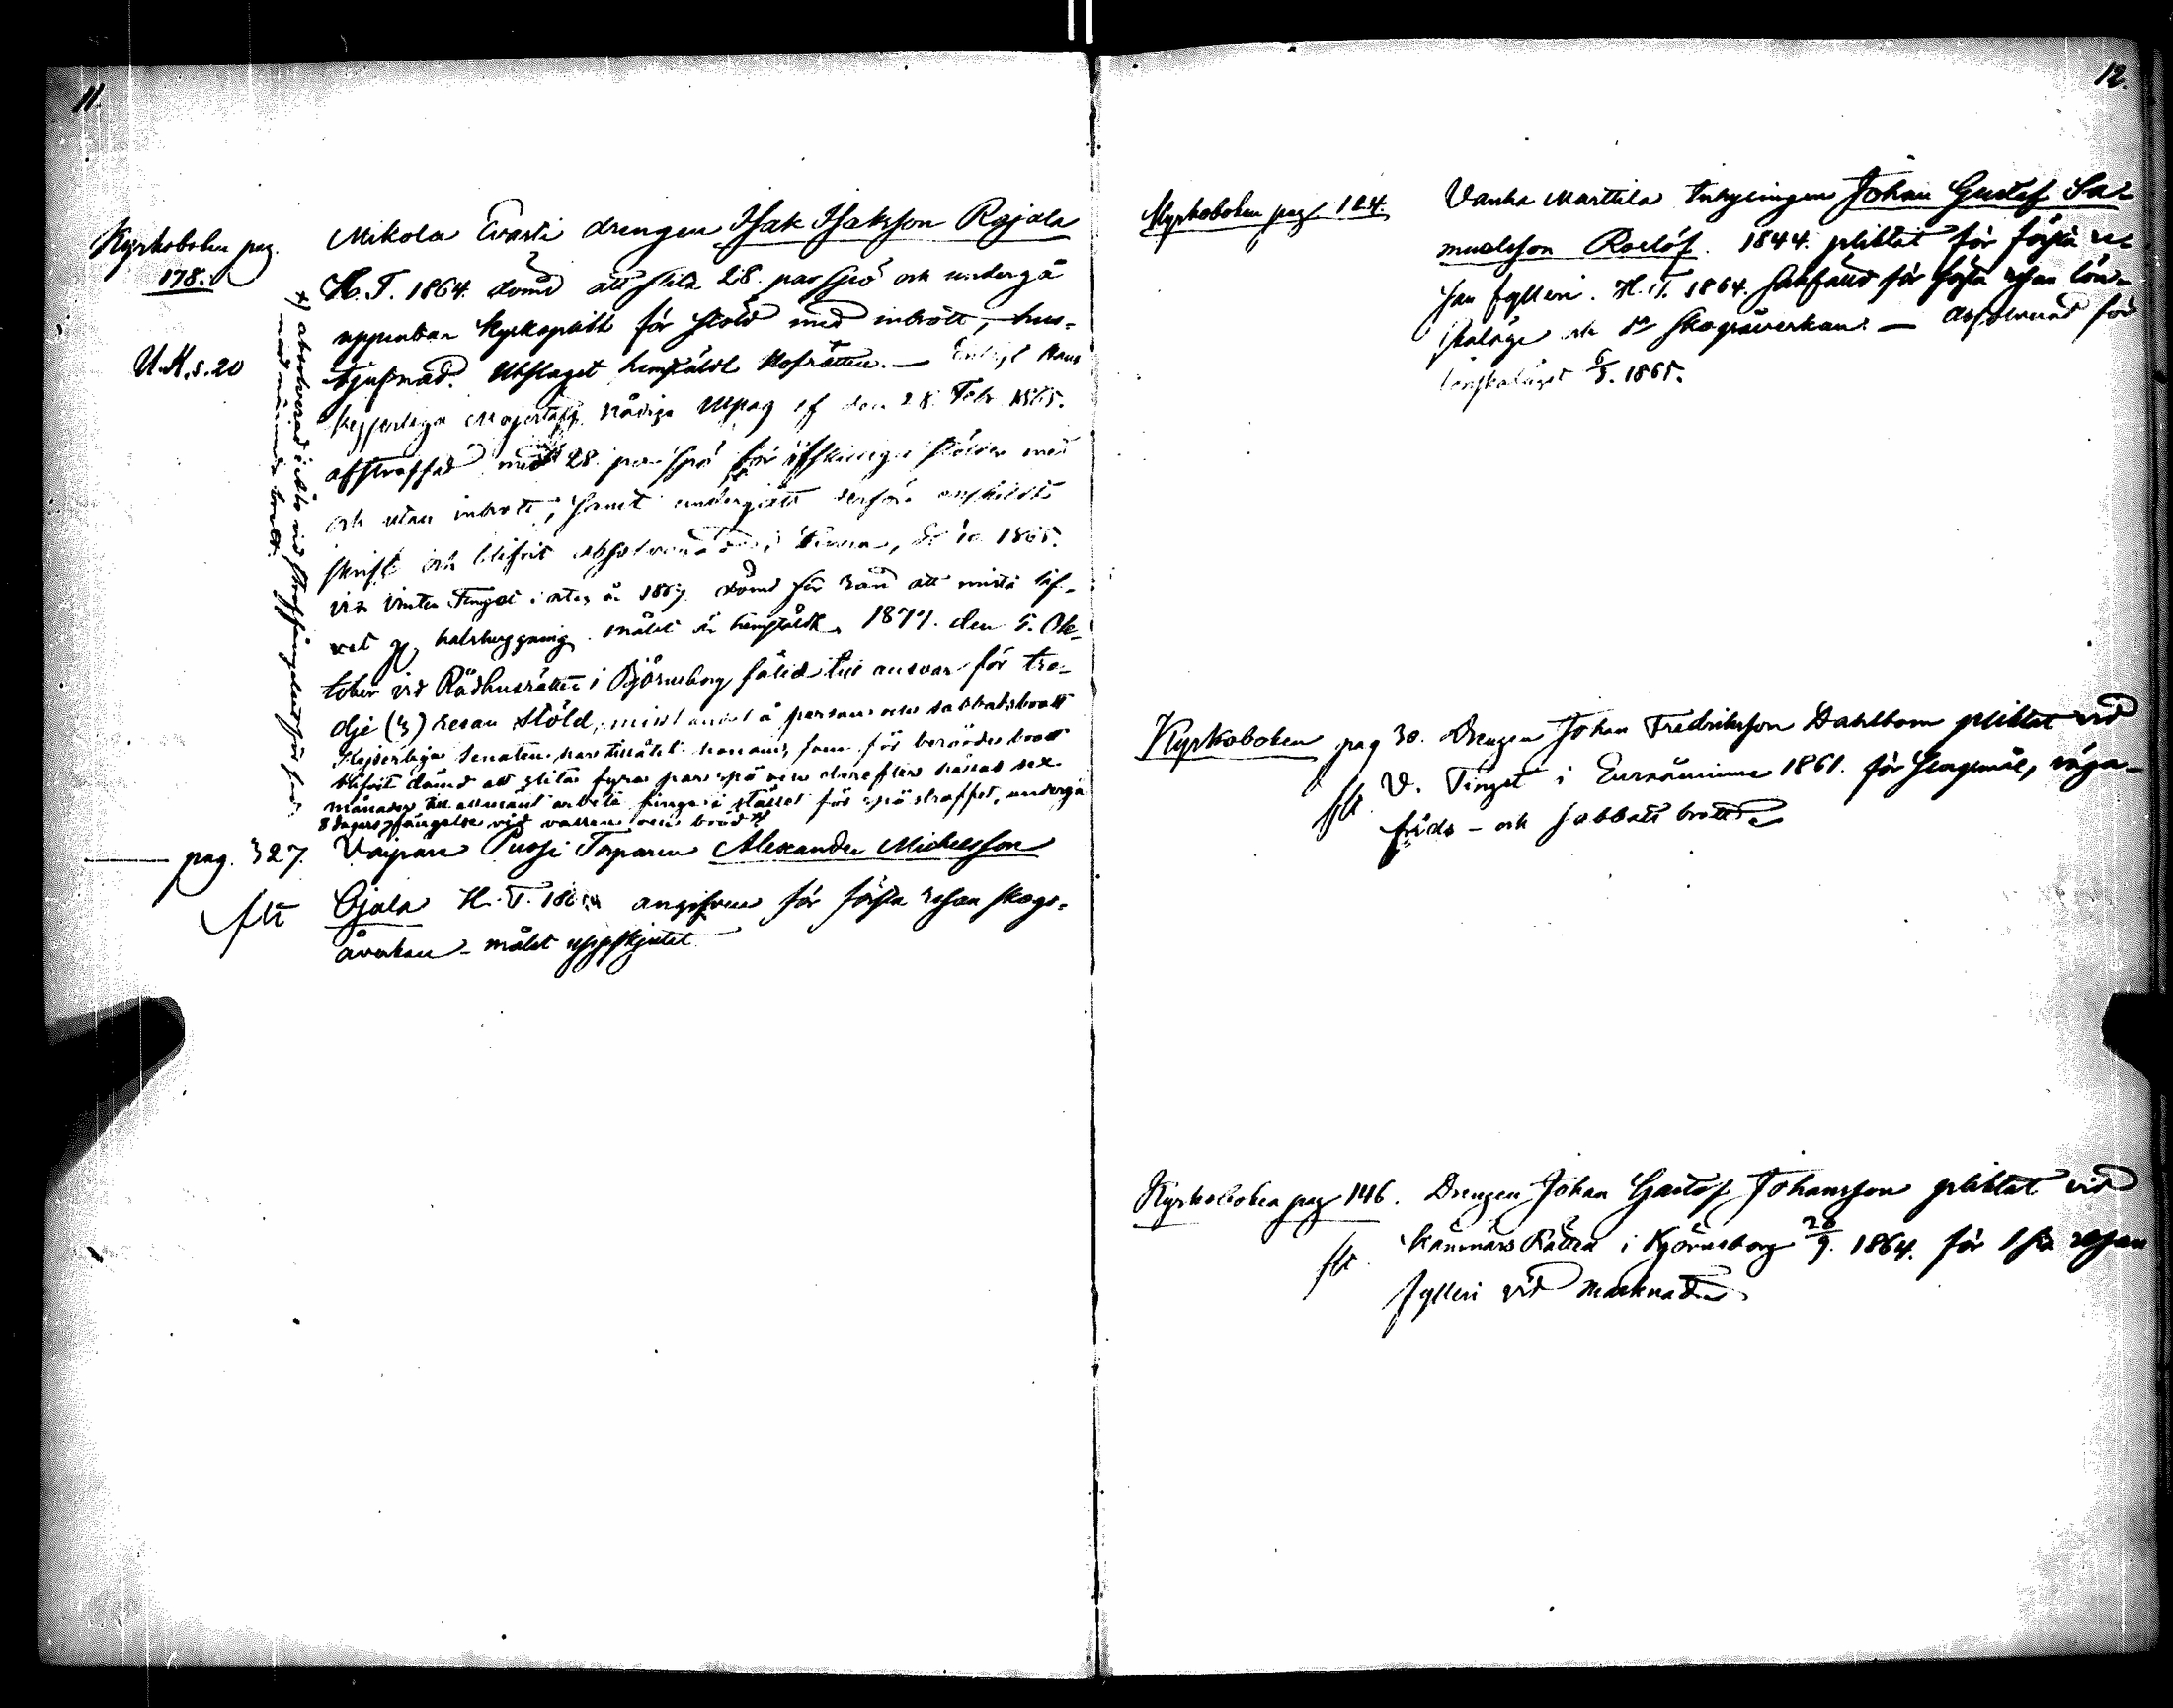 11.
Kyrkoboken pag.
178.
U.K.s.20
Mikola Evarsti drengen Isak Isaksson Rajala
H.T. 1864. dömd att slita 28. par spö och undergå
uppenbar kyrkoplikt för stöld med inbrott, hus-
tjufnad. Utslaget hemstäldt Hofrätten. — Enligt Hans
Kejserliga Majestäts Nådiga Utslag af den 28. Febr 1865.
afstraffad med 28. par spö för åtskilliga stölder med
och utan inbrott, samt undergått derför enskildt
skrift och blifvit absolverad 1865.
vid Vinter Tinget i 1867. dömd för rån att mista lif-
vet gm halshuggning. målet är hemstäldt. 1877. den 5. Ok-
tober vid Rådhusrätten i Björneborg fälld till ansvar för tre-
dje (3) resan stöld, misshandel å person och sabbatsbrott
Kejserliga Senaten har tillåtit honom, som för berörde brott
blifvit dömd att slita fyra par spö och derefter hållas sex
månader till allmänt arbete fingo i stället för spöstraffet, undergå
8 dagars fängelse vid vatten och bröd x)
x) absolverad i för
med nämnde brott.
pag. 327.
flt
Vaipare Pussi Torparen Alexander Michelsson
Ojala H.T. angifven för första resan skogs-
åverkan - målet uppskjutet
12.
Kyrkoboken pag. 124.
Vanha Marttila Inhysingen Johan Gustaf Sa-
muelsson Roslöf. 1844. pliktat för första re-
san fylleri. H.T. 1864. sakfälld för första resan lön-
skaläge och do skogsåverkan. — absolverad för
lönskaläget 6/5. 1865.
Kyrkoboken pag 30. Drengen Johan Fredriksson Dahlbom pliktat vid
flt V. Tinget i Euraåminne 1861. för slagsmål, våga-
frids - och sabbats brott
Kyrkoboken pag 146. Drengen Johan Gustaf Johansson pliktat vid
flt Kämnärs Rätten i Björneborg 26/9. 1864. för 1sta resan
fylleri vid marknad